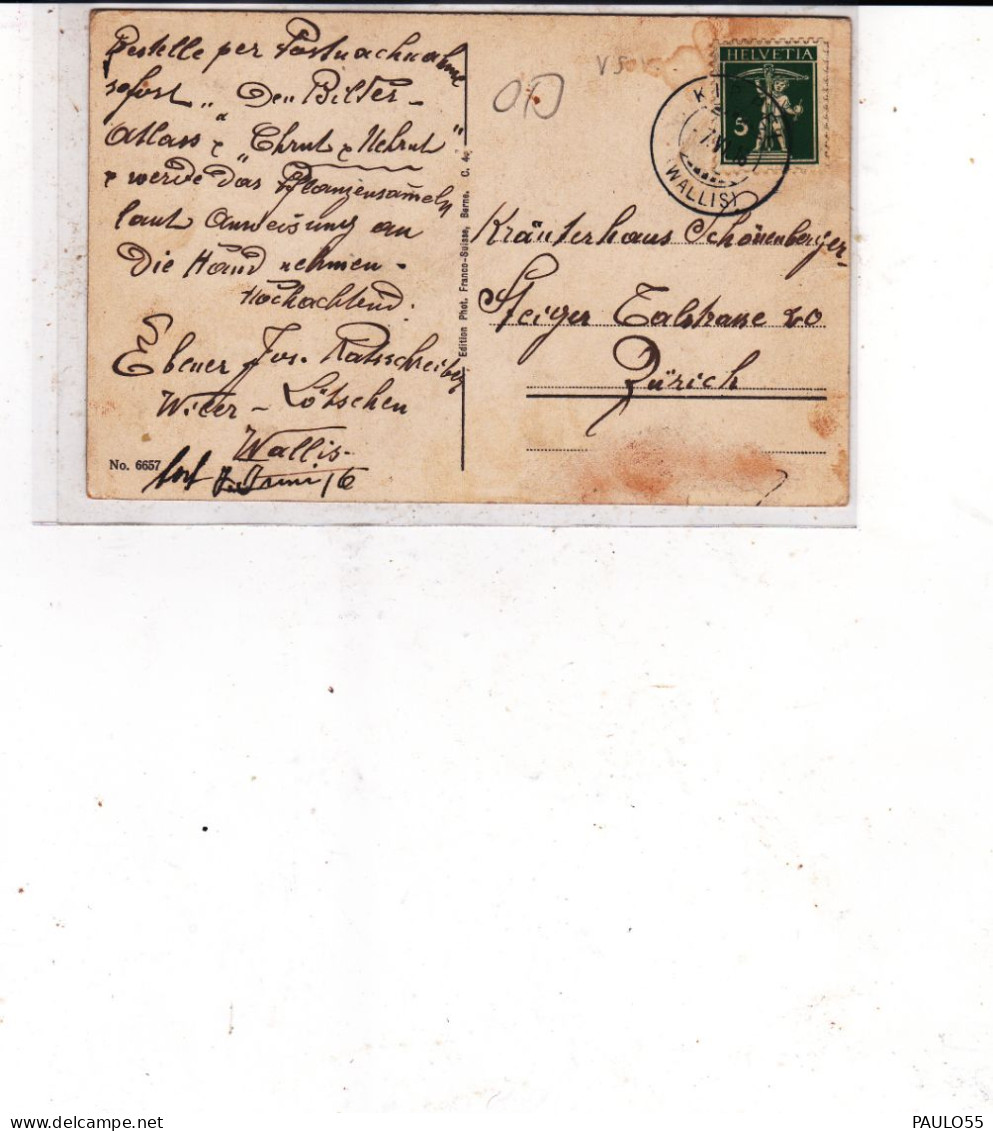 Bestelle per Postnachnahme
sofort „ Den Bilder-
Atlass x "Chrut x Uchrut"
x werde das Pflanzensameln
laut Anweisung an
Die Hand nehmen -
Hochachtend.
Ebener Jos. Ratsschreiber
Wiler - Lötschen
Wallis -
7. Juni 16
No. 6657
Edition Phot. Franco-Suisse, Berne. C. 4
V S
HELVETIA
5
7.VI.16
(WALLIS)
Kräuterhaus Schönenberger-
Steiger Talstrasse 20
Zürich
PAULO55